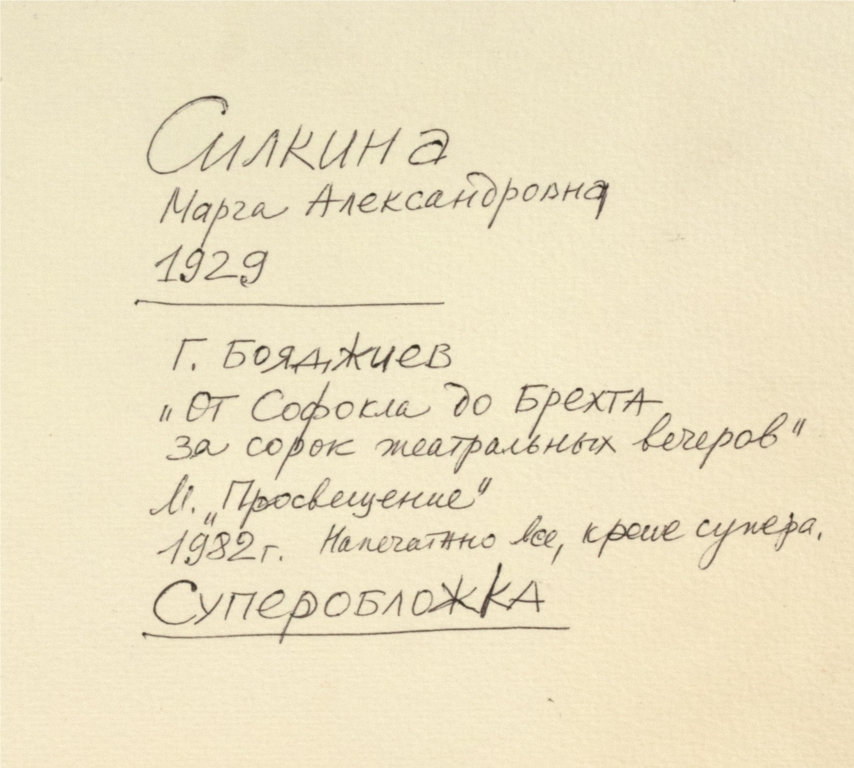 Силкина
Марга Александровна
1929
Г. Бояджиев
"От Софокла до Брехта
за сорок театральных вечеров"
М. "Просвещение"
1982 г. Напечатано все, кроме супера.
Суперобложка